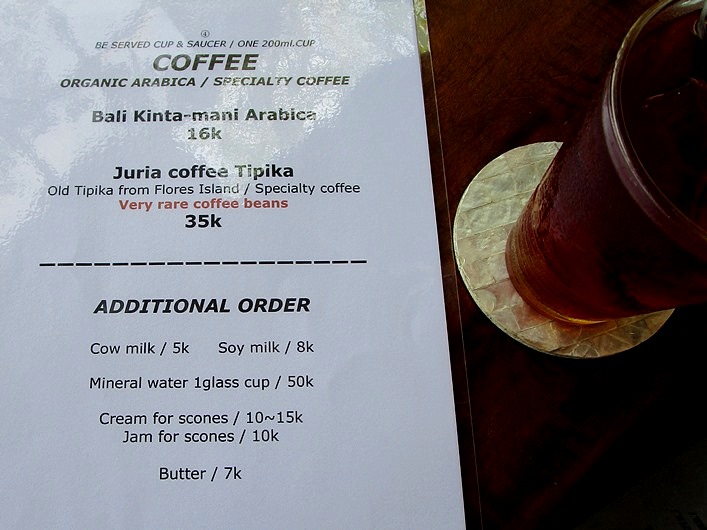 ④
BE SERVED CUP & SAUCER / ONE 200ml.CUP
COFFEE
ORGANIC ARABICA / SPECIALTY COFFEE
Bali Kinta-mani Arabica
16k
Juria coffee Tipika
Old Tipika from Flores Island / Specialty coffee
Very rare coffee beans
35k
ADDITIONAL ORDER
Cow milk / 5k Soy milk / 8k
Mineral water 1glass cup / 50k
Cream for scones / 10~15k
Jam for scones / 10k
Butter / 7k